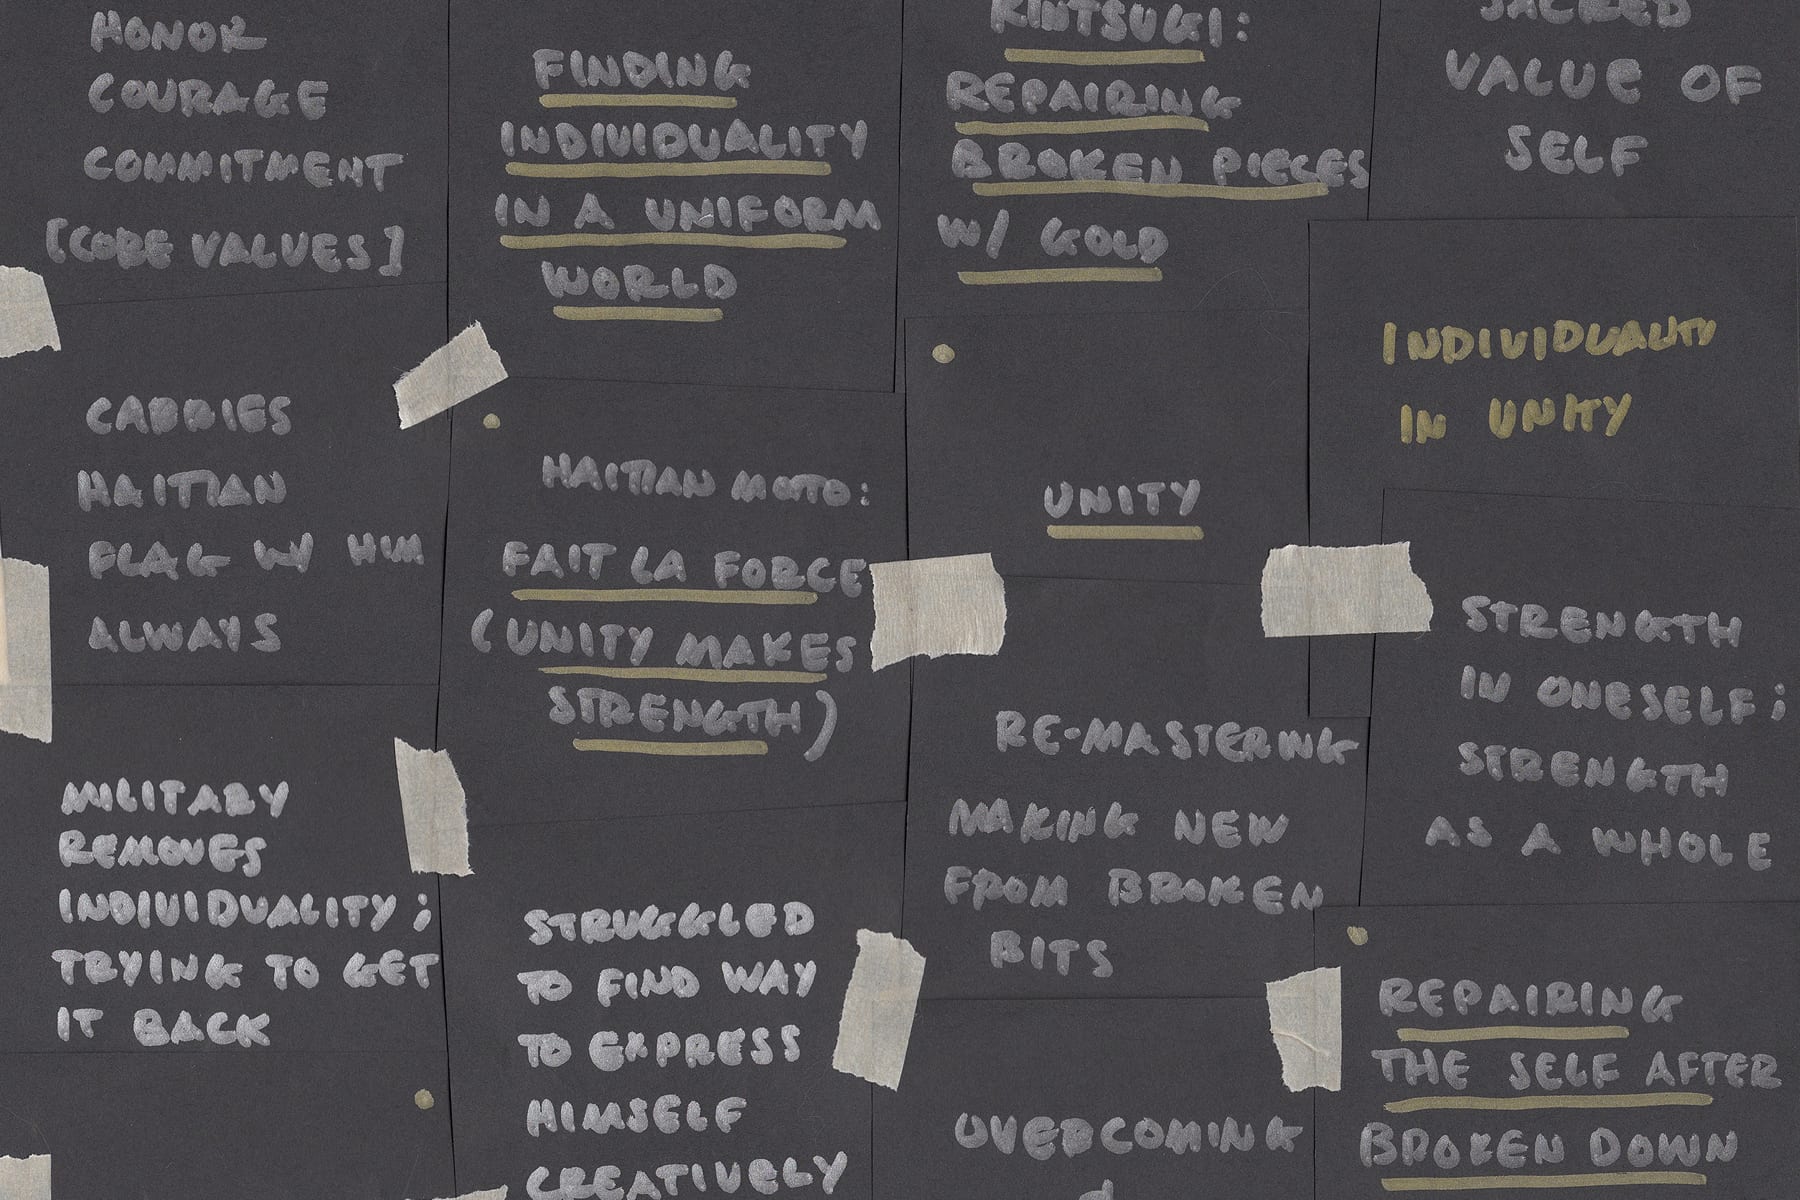 HONOR
COURAGE
COMMITMENT
[CORE VALUES]
CARRIES
HAITIAN
FLAG W/ HIM
ALWAYS
MILITARY
REMOVES
INDIVIDUALITY;
TRYING TO GET
IT BACK
FINDING
INDIVIDUALITY
IN A UNIFORM
WORLD
HAITIAN MOTO:
FAIT LA FORCE
(UNITY MAKES
STRENGTH)
STRUGGLED
TO FIND WAY
TO EXPRESS
HIMSELF
CREATIVELY
KINTSUGI:
REPAIRING
BROKEN PIECES
W/ GOLD
UNITY
RE-MASTERING
MAKING NEW
FROM BROKEN
BITS
OVERCOMING
SACRED
VALUE OF
SELF
INDIVIDUALITY
IN UNITY
STRENGTH
IN ONESELF;
STRENGTH
AS A WHOLE
REPAIRING
THE SELF AFTER
BROKEN DOWN